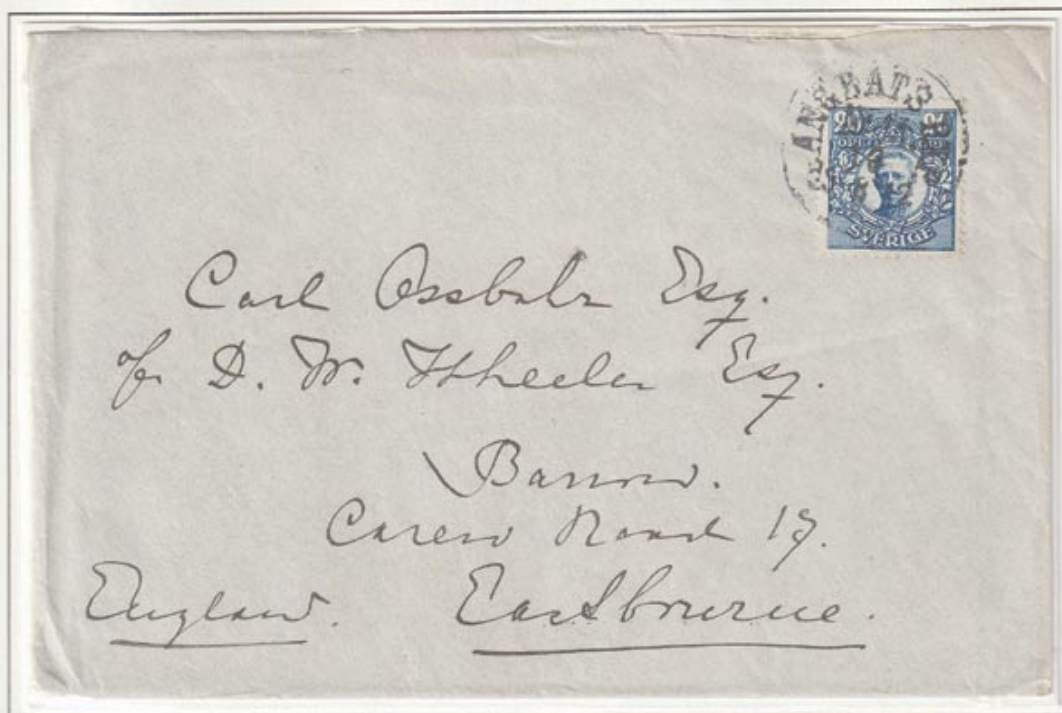 ÅNGBÅTS
20 20
ÖRE ÖRE
SVERIGE
Carl Ossbahr Esq.
c/o D. W. Wheeler Esq.
Barrow.
Carew Road 17.
England. Eastbourne.